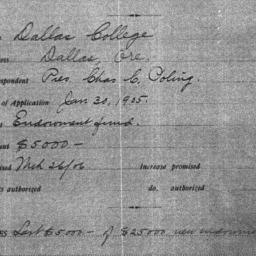 Dallas College
Dallas, Ore.
spondent Pres Chas C. Poling.
of Application Jan 30, 1905.
Endowment fund.
$5000—
ised Mch 26/06 Increase promised
s authorized do. authorized
Last $5000— of $25000 new endowme